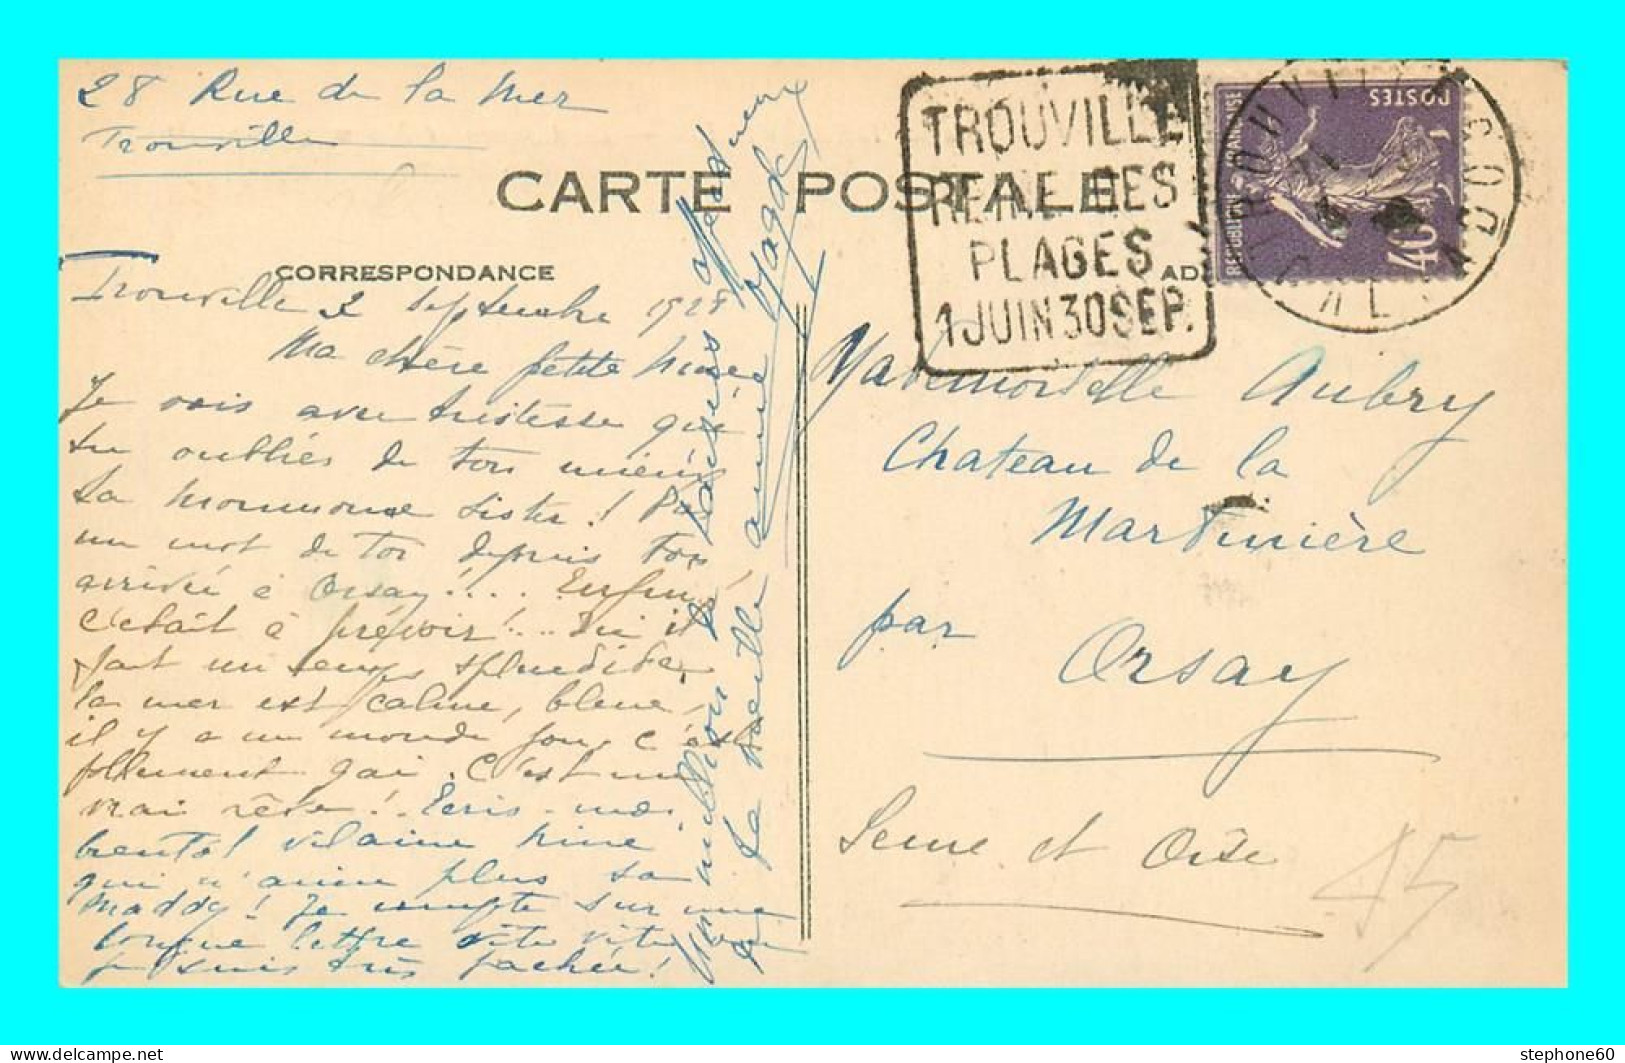 28 Rue de la Mer
Trouville
CARTE POSTALE
TROUVILLE
REINE DES
PLAGES
1 JUIN 30 SEP.
POSTES
40
CORRESPONDANCE
AD
Trouville 2 Septembre 1928
Ma chère petite
Je vois avec tristesse que
tu oublies de ton mieux
ta sister! Pas
un mot de toi depuis ton
arrivée à Orsay!... Enfin!
c'était à prévoir!... Ici il
fait un temps splendide,
la mer est calme, bleue,
il y a un monde fou, c'est
follement gai. C'est un
vrai rêve! Ecris-moi
bientôt vilaine
qui n'aime plus sa
Maddy! Je compte sur une
longue lettre vite vite car
je suis très fachée!
Un million de baisers affectueux
de ta vieille amie Magdy
Mademoiselle Aubry
Chateau de la
Martinière
par
Orsay
Seine et Oise
45
www.delcampe.net
stephone60